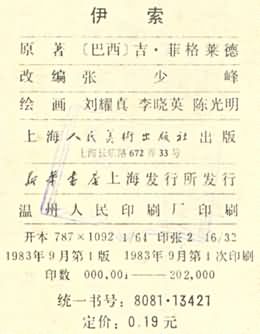 伊索
原著〔巴西〕吉·菲格莱德
改编 张少峰
绘画 刘耀真 李晓英 陈光明
上海人民美术出版社出版
上海长乐路672弄33号
新华书店上海发行所发行
温州人民印刷厂印刷
开本 787×1092 1/64 印张 2 16/32
1983年9月第1版 1983年9月第1次印刷
印数 000,001——202,000
统一书号：8081·13421
定价：0.19元